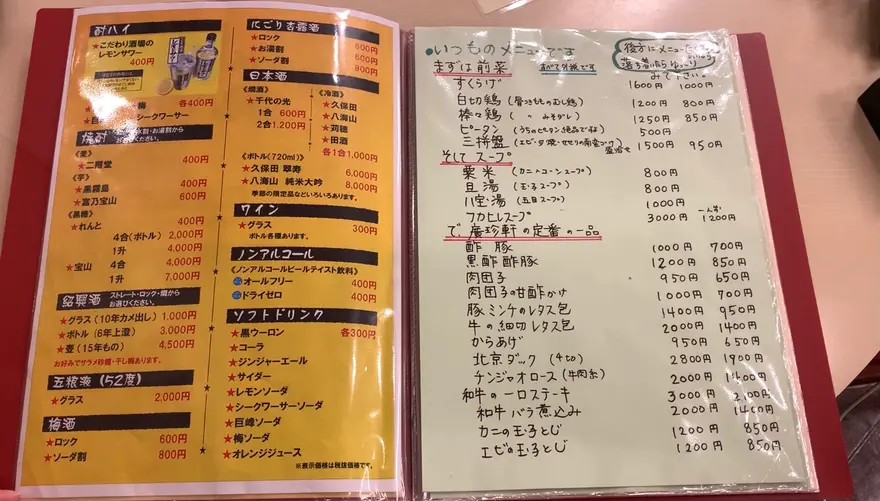 酎ハイ
★こだわり酒場の
レモンサワー
400円
梅 各400円
★巨峰 シークワーサー
焼酎 水割・お湯割から
お選びください。
《麦》
★二階堂 400円
《芋》
★黒霧島 400円
★富乃宝山 600円
《黒糖》
★れんと 400円
4合(ボトル) 2,000円
1升 4,000円
★宝山 4合 4,000円
1升 7,000円
紹興酒 ストレート・ロック・燗から
お選びください。
★グラス(10年カメ出し) 1,000円
★ボトル(6年上澄) 3,000円
★壺(15年もの) 4,500円
お好みでザラメ砂糖・干し梅あります。
五粮液(52度)
★グラス 2,000円
梅酒
★ロック 600円
★ソーダ割 800円
にごり杏露酒
★ロック 600円
★お湯割 600円
★ソーダ割 800円
日本酒
《燗酒》
★千代の光
1合 600円
2合 1,200円
《冷酒》
★久保田
★八海山
★苅穂
★田酒
各1合 1,000円
《ボトル(720ml)》
★久保田 翠寿 6,000円
★八海山 純米大吟 8,000円
季節の限定品などいろいろあります。
ワイン
★グラス 300円
ボトル各種あります。
ノンアルコール
《ノンアルコールビールテイスト飲料》
オールフリー 400円
ドライゼロ 400円
ソフトドリンク
★黒ウーロン 各300円
★コーラ
★ジンジャーエール
★サイダー
★レモンソーダ
★シークワーサーソーダ
★巨峰ソーダ
★梅ソーダ
★オレンジジュース
※表示価格は税抜価格です。
・いつものメニューです
すべて外税です
後ろにメニュー
落ち着いたら ゆっくり
みて下さい。
まずは前菜
すくらげ 1600円 1000円
白切鶏(骨つきももむし鶏) 1200円 800円
棒々鶏(〃 みそダレ) 1250円 850円
ピータン(うちのピータン絶品ですよ) 500円
三拼盤 1500円 950円
そしてスープ
粟米(カニコーンスープ) 800円
旦湯(玉子スープ) 800円
八宝湯(五目スープ) 1000円
フカヒレスープ 3000円 1200円
で、廣珍軒の定番の一品
酢豚 1000円 700円
黒酢酢豚 1200円 850円
肉団子 950円 650円
肉団子の甘酢かけ 1000円 700円
豚ミンチのレタス包 1400円 950円
牛の細切レタス包 2000円 1400円
からあげ 950円 650円
北京ダック(4コ) 2800円 1900円
チンジャオロース(牛肉糸) 2000円 1400円
和牛の一口ステーキ 3000円 2100円
和牛バラ煮込み 2000円 1400円
カニの玉子とじ 1200円 850円
エビの玉子とじ 1200円 850円